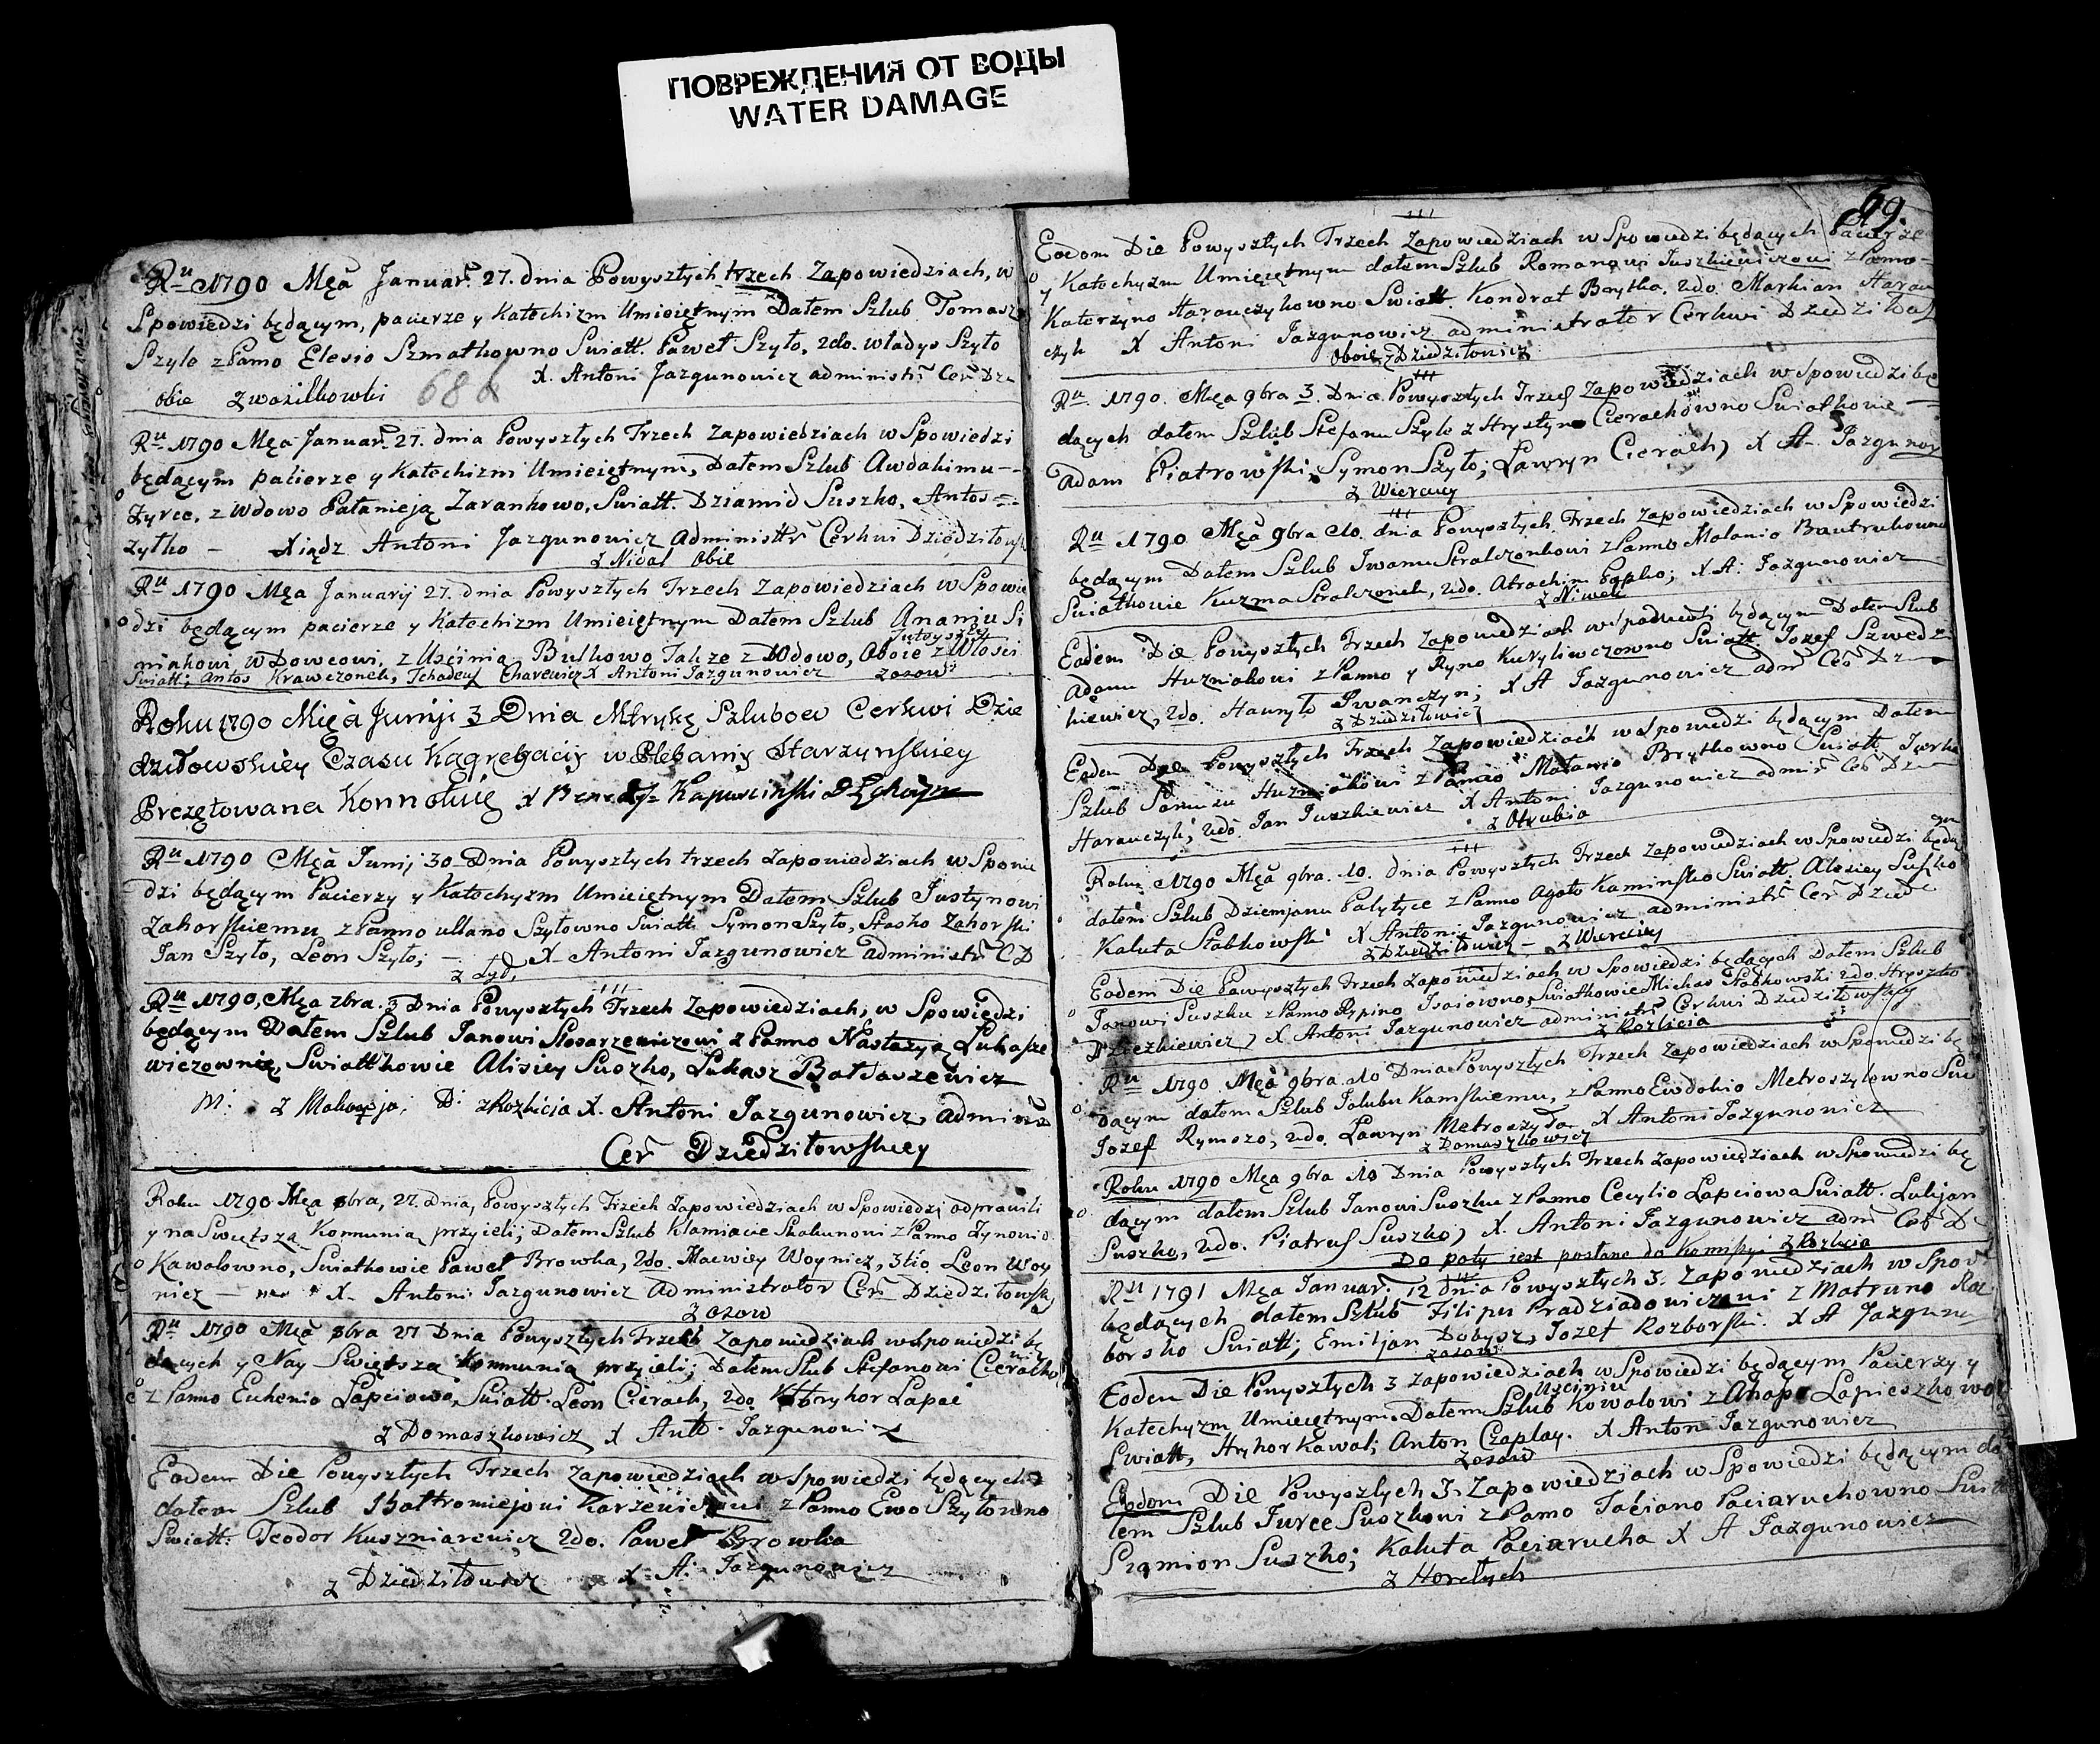 ПОВРЕЖДЕНИЯ ОТ ВОДЫ
WATER DAMAGE
Ru 1790 Męa Januar. 27. dnia Powyszłych trzech Zapowiedziach, w
Spowiedzi będącym, pacierze y Katechizm Umieiętnym Dałem Szlub Tomasz
Szyło z Panno Elesio Szmatkowno Swiatt. Paweł Szyło, 2do. Władys Szyło
X. Antoni Jazgunowicz administr Cer Dze
obie z wasilkowki 68
Ru 1790 Męa Januar. 27. dnia Powyszłych Trzech Zapowiedziach w Spowiedzi
będącym pacierze y Katechizm Umieiętnym, Dałem Szlub Awdakimu
Zyrce, z Wdowo Pałanieją Zarankowo, Swiatt. Dziamid Suszko, Antos
Zytko – Xiądz Antoni Jazgunowicz Administr Cerkwi Dziedziłowsk
z Nidal Obie
Ru 1790 Męa Januarij 27. dnia Powyszłych Trzech Zapowiedziach w Spowie
dzi będącym pacierze y Katechizm Umieiętnym Dałem Szlub Ananiu Si
niakowi, Wdowcowi, z Uscinia Bulkowo Takze z Wdowo, Oboie z Włosci
Swiatt; Antos Krawczonek, Tchadeus Charewicz X Antoni Jazgunowicz zosow
Roku 1790 Mięa Junyi 3 Dnia Mtrykę Szlubow Cerkwi Dzie
dziłowskiey Czasu Kagregacij w Plebanij Starzynskiey
Prezętowana Konnotuię X Kapuscinski
Ru 1790 Męa Junij 30 Dnia Powyszłych trzech Zapowiedziach w Spowie
dzi będącym Pacierzy y Katechyzm Umieiętnym Dałem Szlub Justynowi
Zahorskiemu z Panno Ullano Szyłowno Swiatt Symon Szyło, Stasko Zahorski
Jan Szyło, Leon Szyło; – X Antoni Jazgunowicz administr C D
Ru 1790, Męa 7bra. 3 Dnia Powyszłych Trzech Zapowiedziach, w Spowiedzi
będącym Dałem Szlub Janowi Slosarzewiczowi z Panno Nastazyą Lukasze
wiczownie, Swiattkowie Alisiey Suszko, Łukasz Bałtaszewicz
M: z D: z Rozlicia X. Antoni Jazgunowicz, admini
Cer Dziedziłowskiey
Roku 1790 Męa 8bra, 27. dnia, Powyszłych Trzech Zapowiedziach w Spowiedzi odprawili
y na Swietszą Kommunią przyieli; Dałem Szlub Klamiacie Skakunowi z Panno Zynowio
Kawalowno, Swiatkowie Paweł Browka, 2do. Macwiey Woynicz, 3tio Leon Woy
nicz – X. Antoni Jazgunowicz Administrator Cer Dziedziłowsk
z osow
Ru 1790 Męa 8bra 27 Dnia Powyszłych Trzech Zapowiedziach w Spowiedzi bę
dących y Nay Swiętsza Kommunią przyieli; Dałem Slub Stefanowi Cierachowi
z Panno Euhenio Łapciowo, Swiatt. Leon Cierach, 2do Hryhor Łapac
z Domaszkowicz X Antt. Jazgunowi
Eodem Die Powyszłych Trzech Zapowiedziach w Spowiedzi będących
dałem Szlub Bałtromiejowi Karżewiczowi z Panno Ewo Szyłowno
Swiatt. Teodor Kuszniarewicz 2do. Paweł Browka
z Dziedziłowicz X A: Jazgunowicz
69.
Eodem Die Powyszłych Trzech Zapowiedziach w Spowiedzi będących Pacierze
y Katechyzm Umieiętnym dałem Szlub Romanowi Juszkiewiczowi z Panno
Katerzyno Harauczykowno Swiatt Kondrat Brytko, 2do. Markian Harau
czyk X Antoni Jazgunowicz administrator Cerkwi Dziedziłows
Oboie z Dziedziłowicz
Ru. 1790. Męa 9bra 3. Dnia Powyszłych Trzech Zapowiedziach w Spowiedzi bę
dących dałem Szlub Stefanu Szyle z Hrystyno Cierachowno Swiatkowie
Adam Piatrowski, Symon Szyło; Ławryn Cierach) X A. Jazgunow
z Wiercicy
Ru 1790 Męa 9bra 10. dnia Powyszłych Trzech Zapowiedziach w Spowiedzi
będącym Dałem Szlub Iwanu Stralczonkowi z Panno Małanio Bautrukowno
Swiatkowie Kuzma Stralczonek, 2do. Atrachim Papko; X A: Jazgunowicz
z Niwek
Eodem Die Powyszłych Trzech Zapowiedziach w Spowiedzi będącym Dałem Slub
Adamu Huzniakowi z Panno y Ryno Kuryliwczowno Swiatt Jozef Szwedz
kiewicz, 2do. Hauryło Iwanczyn; X A Jazgunowicz adm Cer Dz
z Dziedziłowicz
Eodem Die Powyszłych Trzech Zapowiedziach w Spowiedzi będącym Dałem
Szlub Huzniakowi z Panno Małanio Brytkowno Swiatt Jurka
Harauczyk; 2do. Jan Juszkiewicz X Antoni Jazgunowicz admi Cer Dz
z Otrubia
Roku 1790 Męa 9bra. 10. dnia Powyszłych Trzech Zapowiedziach w Spowiedzi będą
dałem Szlub Dziemjanu Pałytyce z Panno Agato Kaminsko Swiatt. Alexiey Susko
Kaluta Słabkowski X Antoni Jazgunowicz administr Cer Dzie
z Dziedziłowicz – z Wiercicy
Eodem Die Powyszłych Trzech Zapowiedziach w Spowiedzi będących Dałem Szlub
Janowi Suszku z Panno Rypino Isaiowno, Swiatkowie Michaś Słabkowski 2do. Hryszko
Dzieszkiewicz) X Antoni Jazgunowicz administr Cerkwi Dziedziłowskiey
z Rozlicia
Ru 1790 Męa 9bra. 10 Dnia Powyszłych Trzech Zapowiedziach w Spowiedzi bę
dącym dałem Szlub Jakubu Kamskiemu, z Panno Ewdokio Metroszyłowno Swi
Jozef Rymszo, 2do. Ławryn Metroszyło X Antoni Jazgunowicz
z Domaszkowicz
Roku 1790 Męa 9bra 10 Dnia Powyszłych Trzech Zapowiedziach w Spowiedzi bę
dącym dałem Szlub Janowi Suszku z Panno Cecylio Łapciowa Swiatt. Lukjan
Suszko, 2do. Piatrus Suszko) X. Antoni Jazgunowicz adm Cer D
Do poty iest posłano do Komissyi z Rozlicia
Ru 1791 Męa Januar. 12 dnia Powyszłych 3. Zapowiedziach w Spow
będących dałem Szlub Filipu Pradziadowiczowi z Matruno Roz
borsko Swiatt; Emiljan Dobysz, Jozef Rozborski. X A Jazguno
z osow
Eodem Die Powyszłych 3 Zapowiedziach w Spowiedzi będącym Pacierzy y
Katechyzm Umieiętnym. Dałem Szlub Usciniu Kowalowi z Ahapo Łapieszkowo
Swiatt, Hryhor Kawal; Anton Czaplay. X Antoni Jazgunowicz
z osow
Eodem Die Powyszłych 3. Zapowiedziach w Spowiedzi będącym da
łem Szlub Jurce Suszkowi z Panno Taciano Paciaruchowno Swiatt
Siamion Suszko; Kaluta Paciarucha X A Jazgunowicz
z Horełych